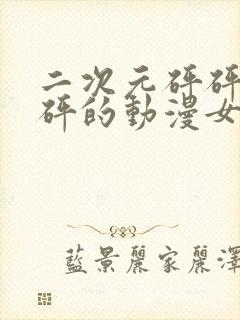 二次元砰砰
砰的動漫女
藍景麗家麗澤